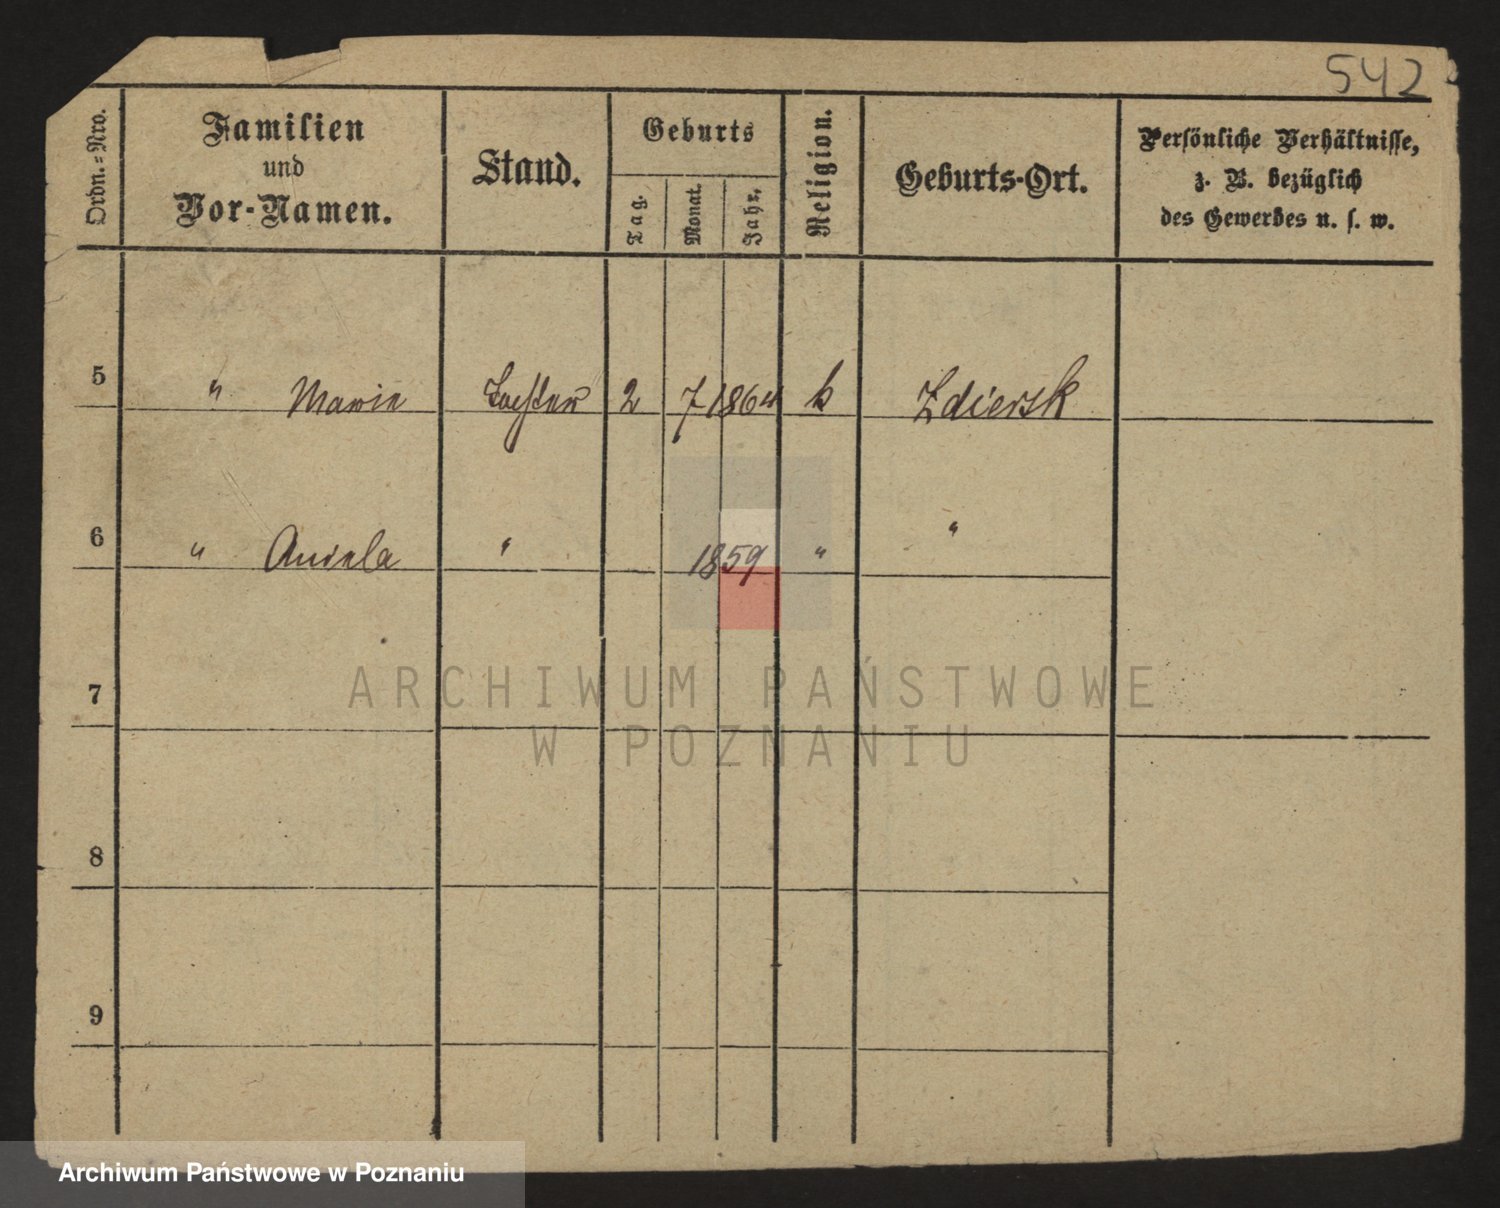 542
Ordn.=Nro.
Familien
und
Vor-Namen.
Stand.
Geburts
Tag.
Monat.
Jahr.
Religion.
Geburts-Ort.
Persönliche Verhältnisse,
z. B. bezüglich
des Gewerbes u. s. w.
5 " Marie Tochter 2 7 1864 k Zdiersk
6 " Aniela " 1859 " "
7
8
9
ARCHIWUM PAŃSTWOWE
W POZNANIU
Archiwum Państwowe w Poznaniu